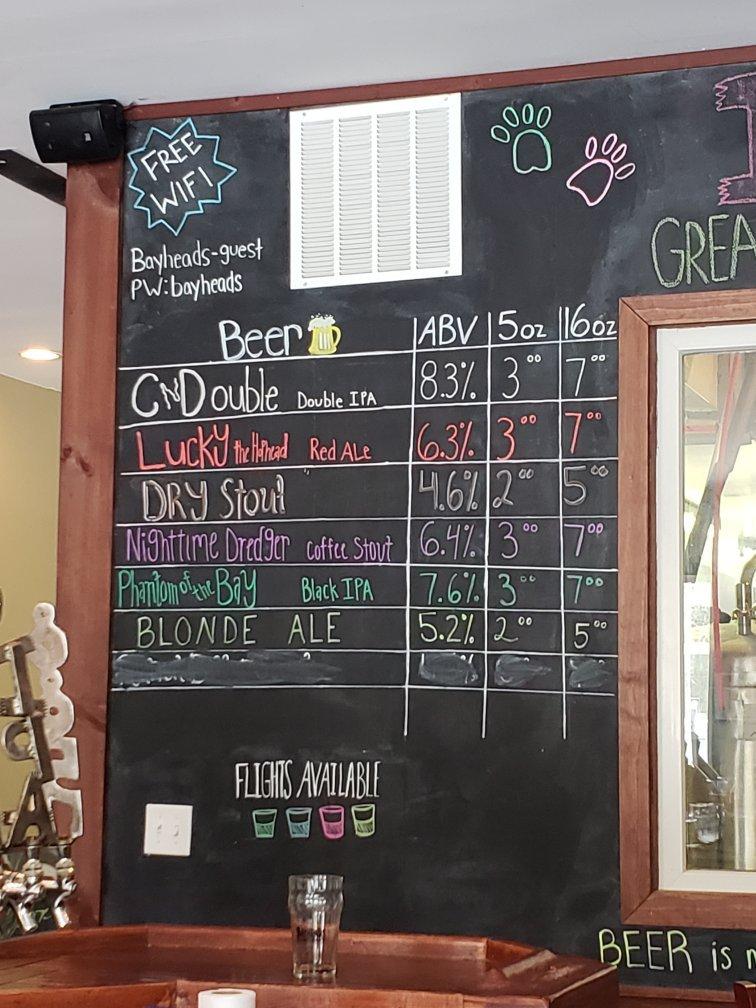 FREE
WIFI
Bayheads-guest
PW:bayheads
GREA
Beer ABV 5oz 16oz
CNDouble Double IPA 8.3% 3.00 7.00
Lucky the Hophead Red Ale 6.3% 3.00 7.00
DRY Stout 4.6% 2.00 5.00
Nighttime Dredger Coffee Stout 6.4% 3.00 7.00
Phantom of the Bay Black IPA 7.6% 3.00 7.00
BLONDE ALE 5.2% 2.00 5.00
FLIGHTS AVAILABLE
BEER is